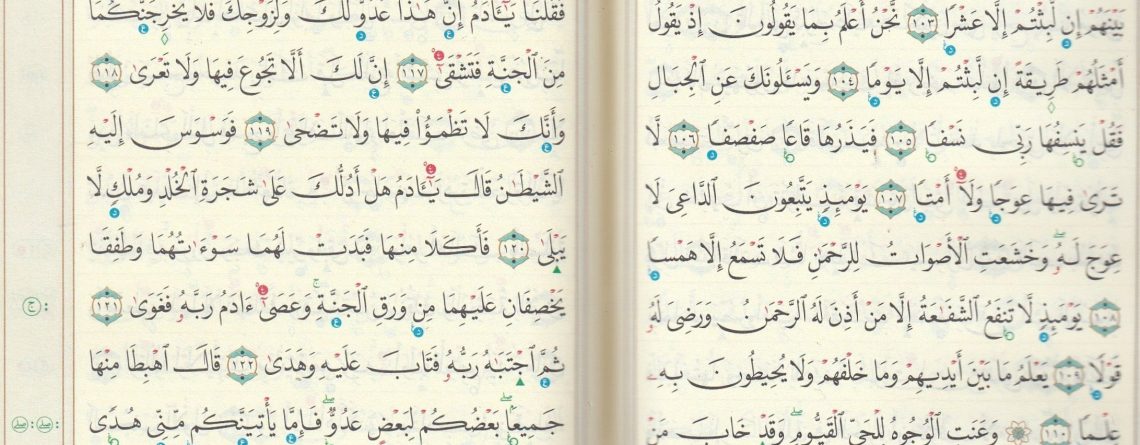 بَيْنَهُمْ إِن لَّبِثْتُمْ إِلَّا عَشْرًا ١٠٣ نَّحْنُ أَعْلَمُ بِمَا يَقُولُونَ إِذْ يَقُولُ
أَمْثَلُهُمْ طَرِيقَةً إِن لَّبِثْتُمْ إِلَّا يَوْمًا ١٠٤ وَيَسْـَٔلُونَكَ عَنِ ٱلْجِبَالِ
فَقُلْ يَنسِفُهَا رَبِّى نَسْفًا ١٠٥ فَيَذَرُهَا قَاعًا صَفْصَفًا ١٠٦ لَّا
تَرَىٰ فِيهَا عِوَجًا وَلَآ أَمْتًا ١٠٧ يَوْمَئِذٍ يَتَّبِعُونَ ٱلدَّاعِىَ لَا
عِوَجَ لَهُۥ ۖ وَخَشَعَتِ ٱلْأَصْوَاتُ لِلرَّحْمَٰنِ فَلَا تَسْمَعُ إِلَّا هَمْسًا
١٠٨ يَوْمَئِذٍ لَّا تَنفَعُ ٱلشَّفَٰعَةُ إِلَّا مَنْ أَذِنَ لَهُ ٱلرَّحْمَٰنُ وَرَضِىَ لَهُۥ
قَوْلًا ١٠٩ يَعْلَمُ مَا بَيْنَ أَيْدِيهِمْ وَمَا خَلْفَهُمْ وَلَا يُحِيطُونَ بِهِۦ
عِلْمًا ١١٠ ۞ وَعَنَتِ ٱلْوُجُوهُ لِلْحَىِّ ٱلْقَيُّومِ ۖ وَقَدْ خَابَ مَنْ
فَقُلْنَا يَٰٓـَٔادَمُ إِنَّ هَٰذَا عَدُوٌّ لَّكَ وَلِزَوْجِكَ فَلَا يُخْرِجَنَّكُمَا
مِنَ ٱلْجَنَّةِ فَتَشْقَىٰٓ ١١٧ إِنَّ لَكَ أَلَّا تَجُوعَ فِيهَا وَلَا تَعْرَىٰ ١١٨
وَأَنَّكَ لَا تَظْمَؤُا۟ فِيهَا وَلَا تَضْحَىٰ ١١٩ فَوَسْوَسَ إِلَيْهِ
ٱلشَّيْطَٰنُ قَالَ يَٰٓـَٔادَمُ هَلْ أَدُلُّكَ عَلَىٰ شَجَرَةِ ٱلْخُلْدِ وَمُلْكٍ لَّا
يَبْلَىٰ ١٢٠ فَأَكَلَا مِنْهَا فَبَدَتْ لَهُمَا سَوْءَٰتُهُمَا وَطَفِقَا
يَخْصِفَانِ عَلَيْهِمَا مِن وَرَقِ ٱلْجَنَّةِ ۚ وَعَصَىٰٓ ءَادَمُ رَبَّهُۥ فَغَوَىٰ ١٢١
ثُمَّ ٱجْتَبَٰهُ رَبُّهُۥ فَتَابَ عَلَيْهِ وَهَدَىٰ ١٢٢ قَالَ ٱهْبِطَا مِنْهَا
جَمِيعًۢا ۖ بَعْضُكُمْ لِبَعْضٍ عَدُوٌّ ۖ فَإِمَّا يَأْتِيَنَّكُم مِّنِّى هُدًى
ج :
صلے : صلے :